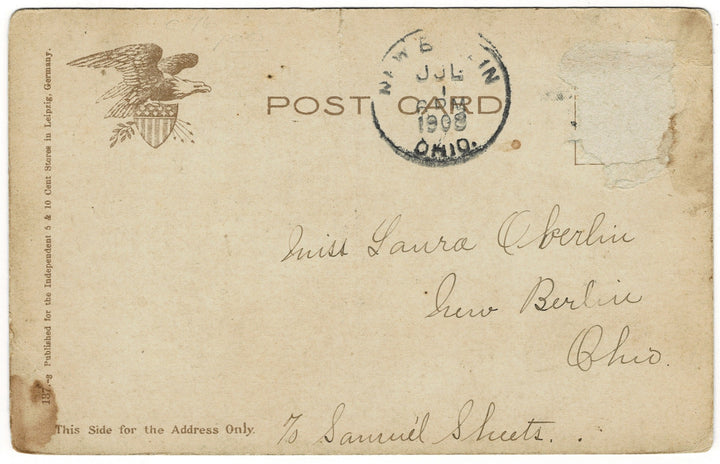 POST CARD
NEW BERLIN
JUL
1
6 PM
1908
OHIO.
137.-8 Published for the Independent 5 & 10 Cent Stores in Leipzig, Germany.
Miss Laura Oberlin
New Berlin
Ohio.
This Side for the Address Only.
c/o Samuel Sheets.